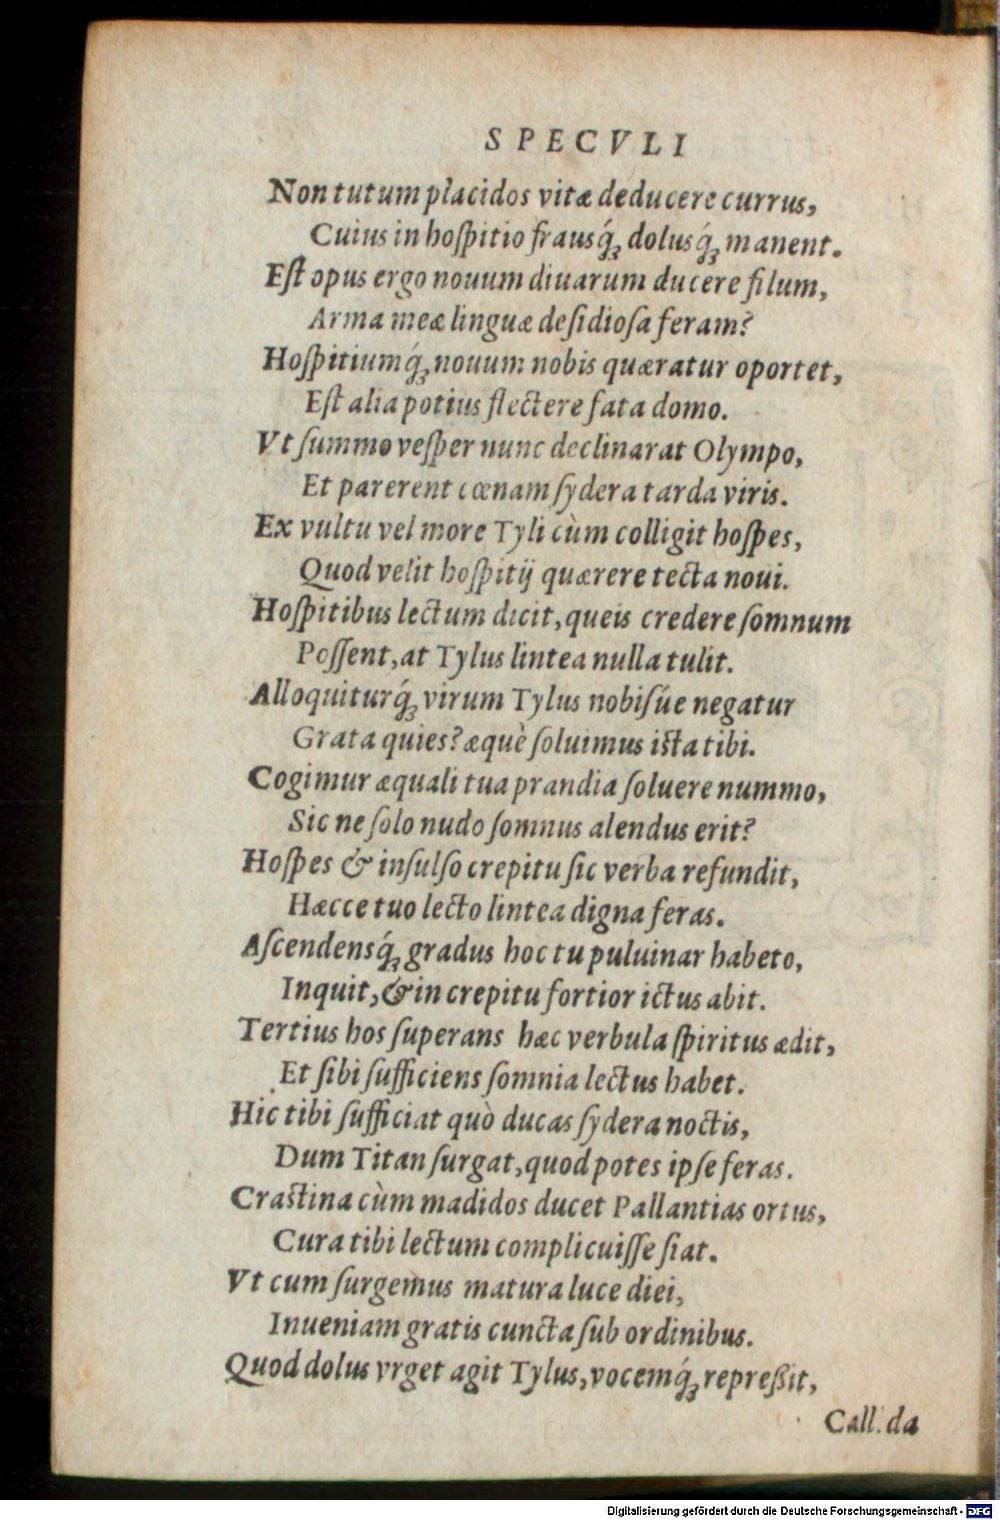 SPECVLI
Non tutum placidos vitæ deducere currus,
Cuius in hoſpitio frausq́; dolusq́; manent.
Eſt opus ergo nouum diuarum ducere filum,
Arma meæ linguæ deſidioſa feram?
Hoſpitiumq́; nouum nobis quæratur oportet,
Eſt alia potius flectere fata domo.
Vt ſummo veſper nunc declinarat Olympo,
Et parerent cœnam ſydera tarda viris.
Ex vultu vel more Tyli cùm colligit hoſpes,
Quod velit hoſpitij quærere tecta noui.
Hoſpitibus lectum dicit, queis credere ſomnum
Poſſent, at Tylus lintea nulla tulit.
Alloquiturq́; virum Tylus nobiſúe negatur
Grata quies? æquè ſoluimus iſta tibi.
Cogimur æquali tua prandia ſoluere nummo,
Sic ne ſolo nudo ſomnus alendus erit?
Hoſpes & inſulſo crepitu ſic verba refundit,
Hæcce tuo lecto lintea digna feras.
Aſcendensq́; gradus hoc tu puluinar habeto,
Inquit, & in crepitu fortior ictus abit.
Tertius hos ſuperans hæc verbula ſpiritus ædit,
Et ſibi ſufficiens ſomnia lectus habet.
Hic tibi ſufficiat quò ducas ſydera noctis,
Dum Titan ſurgat, quod potes ipſe feras.
Craſtina cùm madidos ducet Pallantias ortus,
Cura tibi lectum complicuiſſe ſiat.
Vt cum ſurgemus matura luce diei,
Inueniam gratis cuncta ſub ordinibus.
Quod dolus vrget agit Tylus, vocemq́; repreßit,
Call.da
Digitalisierung gefördert durch die Deutsche Forschungsgemeinschaft - DFG